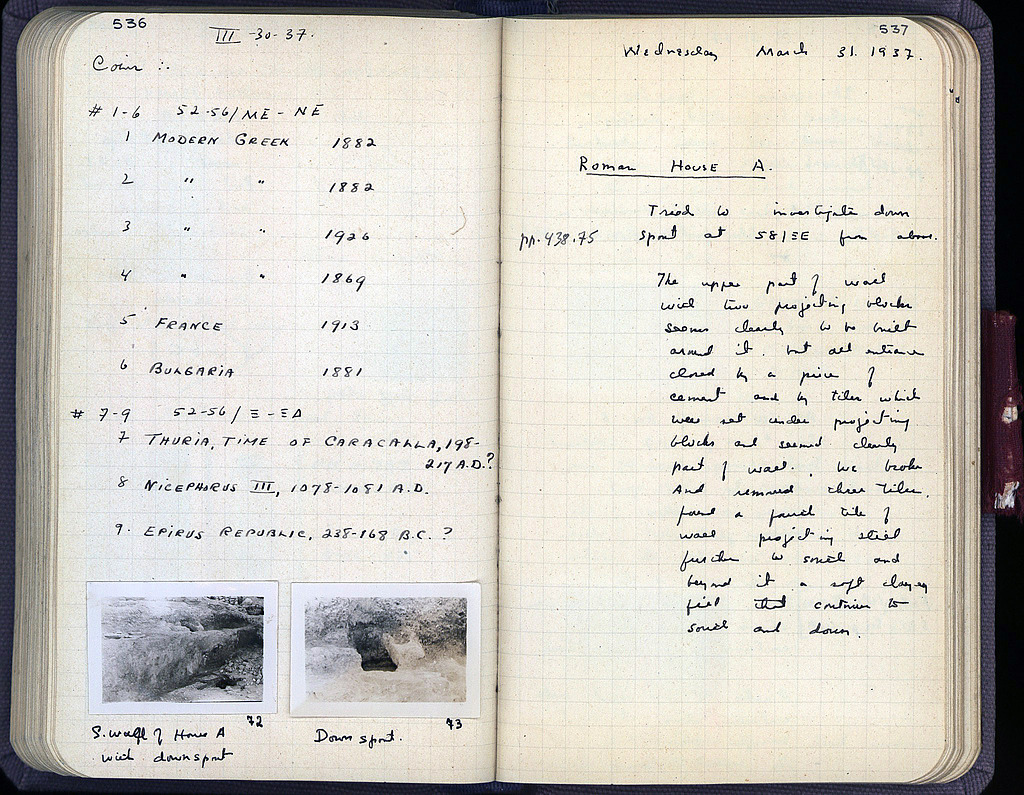 536
III -30-37.
Coins :.
# 1-6 52-56/ME-NE
1 MODERN GREEK 1882
2 " " 1882
3 " " 1926
4 " " 1869
5 FRANCE 1913
6 BULGARIA 1881
# 7-9 52-56/Ξ-ΞΔ
7 THURIA, TIME OF CARACALLA, 198-
217 A.D.?
8 NICEPHORUS III, 1078-1081 A.D.
9. EPIRUS REPUBLIC, 238-168 B.C. ?
72
S. wall of House A
with downspout
73
Down spout.
537
Wednesday March 31. 1937.
ROMAN HOUSE A.
Tried to investigate down
pp. 438.75 spout at 58/ΞE from above.
The upper part of wall
with two projecting blocks
seems clearly to be built
around it, but all entrance
closed by a piece of
cement and by tiles which
were set under projecting
blocks and seemed clearly
part of wall. We broke
and removed three tiles,
found a tile of
wall projecting still
further to south and
beyond it a soft clayey
fill that continues to
south and down.